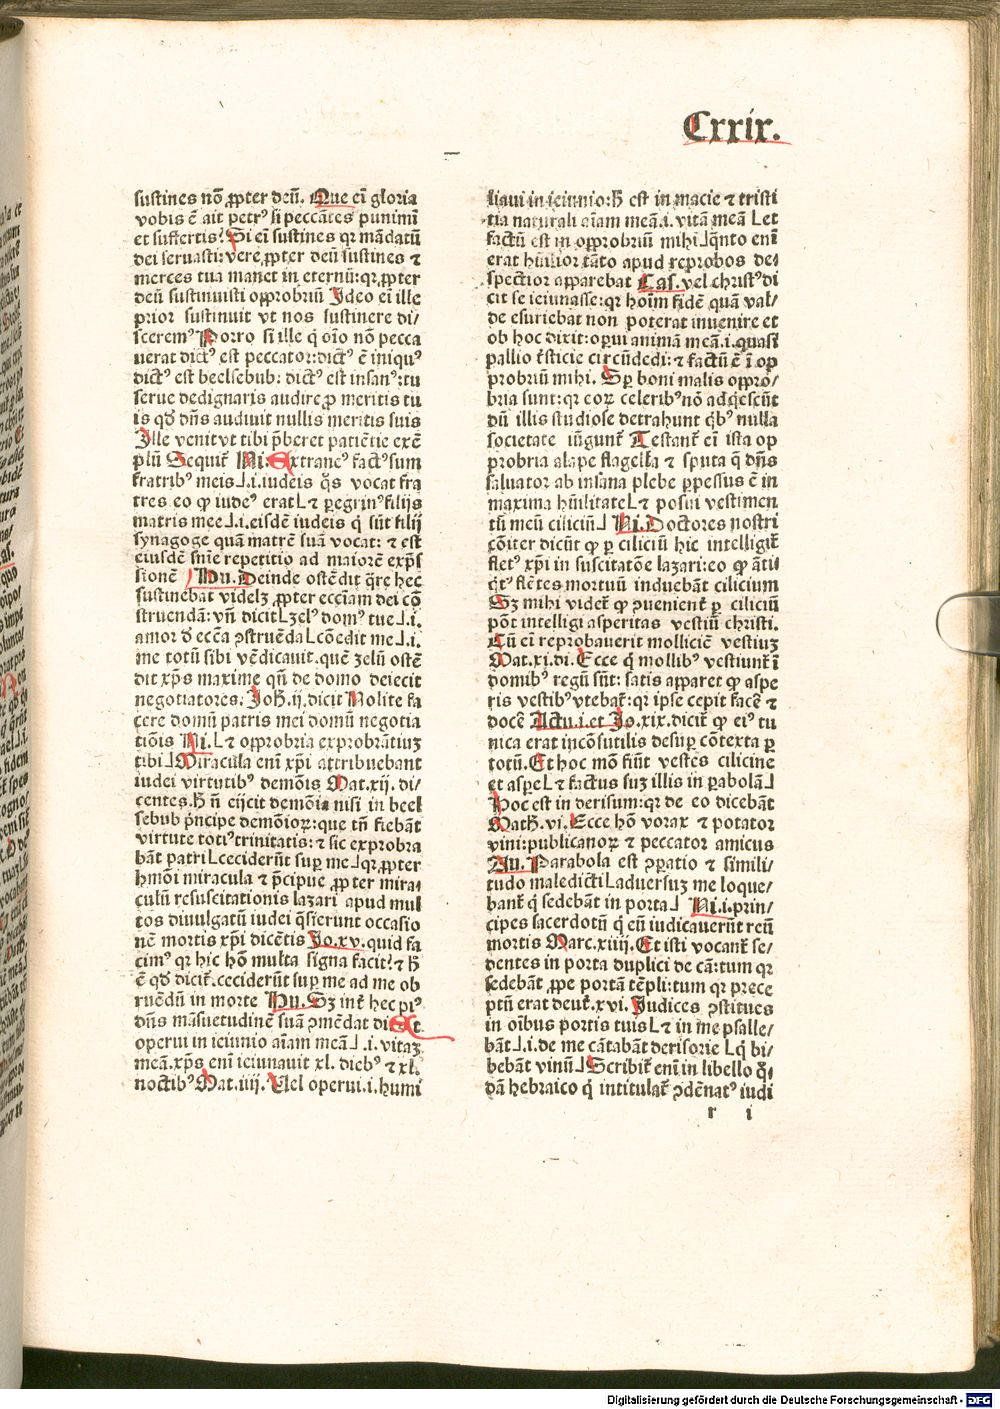 Cxxix.
sustines nō ꝓpter deū. Que eī gloria
vobis ē ait petrꝰ si peccātes punimī
et suffertis? Si eī sustines qꝛ mādatū
dei seruasti: vere ꝓpter deū sustines ⁊
merces tua manet in eternū: qꝛ ꝓpter
deū sustinuisti opprobriū Ideo ei ille
prior sustinuit vt nos sustinere di/
sceremꝰ Porro si ille q̇ oīo nō pecca
uerat dictꝰ est peccator: dictꝰ ē iniquꝰ
dictꝰ est beelsebub: dictꝰ est insanꝰ: tu
serue dedignaris audire ꝓ meritis tu
is qđ dn̄s audiuit nullis meritis suis
Ille venit vt tibi p̄beret patiētie exē
plū Sequit̄ Ni. Extraneꝰ factꝰ sum
fratribꝰ meis⅃.i. iudeis q̇s vocat fra
tres eo ꝙ iudeꝰ erat L⁊ ꝑegrinꝰ filijs
matris mee⅃.i. eisdē iudeis q̇ sūt filij
synagoge quā matrē suā vocat: ⁊ est
eiusdē snīe repetitio ad maiorē exp̄s
sionē Au. Deinde ostēdit q̄re hec
sustinebat videlꝫ ꝓpter ecc̄iam dei cō
struendā: vn̄ dicit Lꝫelꝰ domꝰ tue⅃.i.
amor đ ecc̄a ꝯstruēda Lcōedit me⅃.i.
me totū sibi vēdicauit. quē ꝫelū ostē
dit xp̄s maxime qn̄ de domo deiecit
negotiatores: Joh̄. ij. dicit Nolite fa
cere domū patris mei domū negotia
tiōis Ni. L⁊ opprobria exprobrātiuꝫ
tibi⅃Miracula enī xp̄i attribuebant
iudei virtutibꝰ demōis Mat. xij. di/
centes. h̄ n̄ eijcit demōia nisi in beel
sebub p̄ncipe demōioꝝ: que tn̄ fiebāt
virtute totiꝰ trinitatis: ⁊ sic exprobra
bāt patri Lceciderūt suꝑ me⅃qꝛ ꝓpter
hmōi miracula ⁊ p̄cipue ꝓpter mira/
culū resuscitationis lazari apud mul
tos diuulgatū iudei q̄sierunt occasio
nē mortis xp̄i dicētis Jo. xv. quid fa
cimꝰ qꝛ hic hō multa signa facit? ⁊ h̄
ē qđ dicit̄. ceciderūt suꝑ me ad me ob
ruēdū in morte Hu. Sꝫ int̄ hec piꝰ
dn̄s māsuetudinē suā ꝯmēdat di. Et
operui in ieiunio aīam meā⅃.i. vitaꝫ
meā. xp̄s enī ieiunauit xl. diebꝰ ⁊ xl.
noctibꝰ Mat. iiij. Vel operui .i. humi
liaui in ieiunio: h̄ est in macie ⁊ tristi
tia naturali aīam meā.i. vitā meā Let
factū est in opprobriū mihi⅃q̄nto enī
erat hūilior tāto apud reprobos de/
spectior apparebat Cas. vel christꝰ di
cit se ieiunasse: qꝛ hoīm fidē quā val/
de esuriebat non poterat inuenire et
ob hoc dixit: operui animā meā.i. quasi
pallio tristicie circūdedi: ⁊ factū ē ī op
probriū mihi. Sꝑ boni malis oppro/
bria sunt: qꝛ eoꝝ celeribꝰ nō adq̇escūt
dū illis studiose detrahunt q̇bꝰ nulla
societate iūgunt̄ Testant̄ eī ista op
probria alape flagella ⁊ sputa q̄ dn̄s
saluator ab insana plebe ꝑpessus ē in
maxima hūilitate L⁊ posui vestimen
tū meū ciliciū⅃ Ni. Doctores nostri
cōiter dicūt ꝙ ꝑ ciliciū hic intelligit̄
fletꝰ xp̄i in suscitatōe lazari: eo ꝙ āti
q̇tꝰ flētes mortuū induebāt cilicium
Sꝫ mihi videt̄ ꝙ ꝯuenient̄ ꝑ ciliciū
pōt intelligi asperitas vestiū christi.
Cū eī reprobauerit molliciē vestiuꝫ
Mat. xi. di. Ecce q̇ mollibꝰ vestiunt̄ ī
domibꝰ regū sūt: satis apparet ꝙ aspe
ris vestibꝰ vtebat̄: qꝛ ipse cepit facē ⁊
docē Actu. i. et Jo. xix. dicit̄ ꝙ eiꝰ tu
nica erat incōsutilis desuꝑ cōtexta ꝑ
totū. Et hoc mō fiūt vestes cilicine
et aspe L⁊ factus suꝫ illis in ꝑabolā⅃
Hoc est in derisum: qꝛ de eo dicebāt
Math̄. vi. Ecce hō vorax ⁊ potator
vini: publicanoꝝ ⁊ peccatoꝝ amicus
Au. Parabola est ꝯparatio ⁊ simili/
tudo maledicti Laduersuꝫ me loque/
bant̄ q̇ sedebāt in porta⅃ Ni. i. prin/
cipes sacerdotū q̇ eū iudicauerūt reū
mortis Marc. xiiij. Et isti vocant̄ se/
dentes in porta duplici de cā: tum qꝛ
sedebāt ꝓpe portā tēpli: tum qꝛ prece
ptū erat deut̄. xvi. Judices ꝯstitues
in oībus portis tuis L⁊ in me psalle/
bāt⅃.i. de me cātabāt derisorie Lq̇ bi/
bebāt vinū⅃Scribit̄ enī in libello q̇/
dā hebraico q̇ intitulat̄ ꝯdēnatꝰ iudi
r i
Digitalisierung gefördert durch die Deutsche Forschungsgemeinschaft - DFG